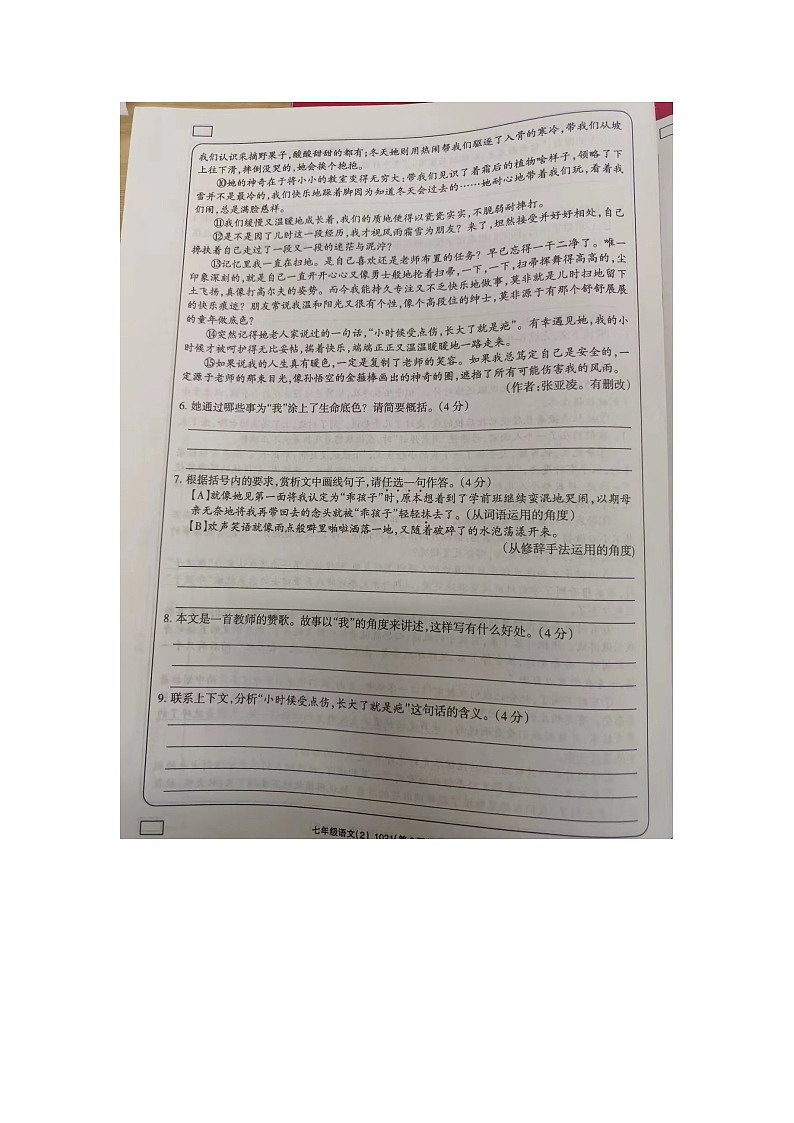 我们认识采摘野果子,酸酸甜甜的都有;冬天她则用热闹帮我们驱逐了入骨的寒冷,带我们从坡
上往下滑,摔倒没哭的,她会挨个抱抱。
⑩她的神奇在于将小小的教室变得无穷大:带我们见识了着霜后的植物啥样子,领略了下
雪并不是最冷的,我们快乐地跺着脚因为知道冬天会过去的……她耐心地带着我们玩,看着我
们闹,总是满脸慈祥。
⑪我们缓慢又温暖地成长着,我们的质地便得以瓷瓷实实,不脆弱耐摔打。
⑫是不是因了儿时这一段经历,我才视风雨霜雪为朋友?来了,坦然接受并好好相处,自己
搀扶着自己走过了一段又一段的迷茫与泥泞?
⑬记忆里我一直在扫地。是自己喜欢还是老师布置的任务?早已忘得一干二净了。唯一
印象深刻的,就是自己一直开开心心又像勇士般地抡着扫帚,一下,一下,扫帚挥舞得高高的,尘
土飞扬,真像打高尔夫的姿势。而今我能持久专注又不乏快乐地做事,莫非就是儿时扫地留下
的快乐痕迹?朋友常说我温和阳光又很有个性,像个高段位的绅士,莫非源于有那个舒舒展展
的童年做底色?
⑭突然记得她老人家说过的一句话,“小时候受点伤,长大了就是疤”。有幸遇见她,我的小
时候才被呵护得无比妥帖,揣着快乐,端端正正又温温暖暖地一路走来。
⑮如果说我的人生真有暖色,一定是复制了老师的笑容。如果我总笃定自己是安全的,一
定源于老师的那束目光,像孙悟空的金箍棒画出的神奇的圈,遮挡了所有可能伤害我的风雨。
(作者:张亚凌。有删改)
6. 她通过哪些事为“我”涂上了生命底色?请简要概括。(4分)
7. 根据括号内的要求,赏析文中画线句子,请任选一句作答。(4分)
【A】就像她见第一面将我认定为“乖孩子”时,原本想着到了学前班继续蛮混地哭闹,以期母
亲无奈地将我再带回去的念头就被“乖孩子”轻轻抹去了。(从词语运用的角度)
【B】欢声笑语就像雨点般噼里啪啦洒落一地,又随着破碎了的水泡荡漾开来。
(从修辞手法运用的角度)
8. 本文是一首教师的赞歌。故事以“我”的角度来讲述,这样写有什么好处。(4分)
9. 联系上下文,分析“小时候受点伤,长大了就是疤”这句话的含义。(4分)
七年级语文(2) 1021(